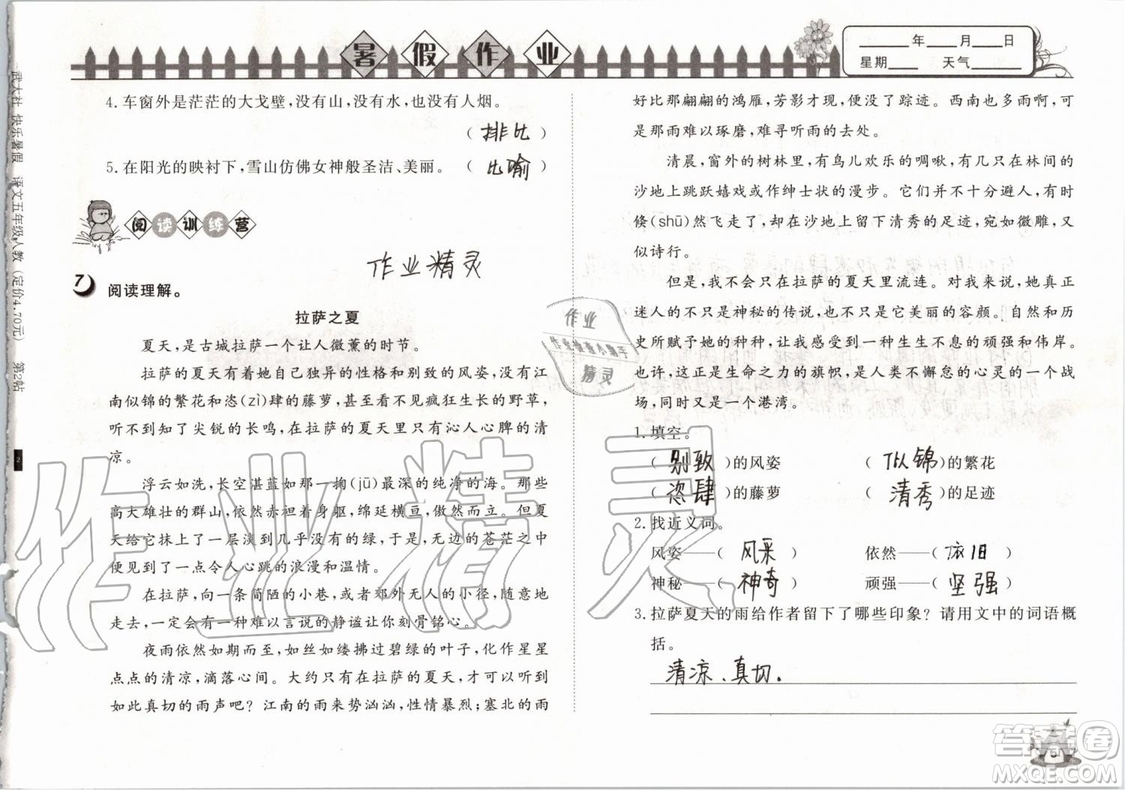 暑假作业
____年____月____日
星期____ 天气____
武大社 快乐暑假 语文五年级人教(定价4.70元) 第2帖
2
4. 车窗外是茫茫的大戈壁,没有山,没有水,也没有人烟。
( 排比 )
5. 在阳光的映衬下,雪山仿佛女神般圣洁、美丽。( 比喻 )
阅读训练营
作业精灵
7 阅读理解。
拉萨之夏
夏天,是古城拉萨一个让人微薰的时节。
拉萨的夏天有着她自己独异的性格和别致的风姿,没有江
南似锦的繁花和恣(zì)肆的藤萝,没有疯狂生长的野草,
听不到尖锐的长鸣,在拉萨的夏天里只有沁人心脾的清
凉。
浮云如洗,长空湛蓝如那一掬(jū)最深的纯净的海。那些
高大雄壮的群山,依然赤袒着身躯,绵延横亘,傲然而立。但夏
天给它抹上了一层淡到几乎没有的绿,于是,在无边的苍茫之中
便见到了一点令人心跳的浪漫和温情。
在拉萨,向一条简陋的小巷,或者伸向郊外的小径,走
去,一定会有一种难以言说的静谧让你刻骨铭心。
夜雨依然如期而至,如丝如缕拂过碧绿的叶子,化作星星
点点的清凉,滴落心间。大约只有在拉萨的夏天,才能听到
如此真切的雨声吧?江南的雨来势汹汹,性情暴烈;塞北的雨
好比那翩翩的鸿雁,芳影才现,便没了踪迹。西南也多雨啊,可
是那雨难以琢磨,难以寻访雨的去处。
清晨,窗外的树林里,有鸟儿欢乐的啁啾,也有只在林间的
沙地上跳跃嬉戏或作绅士状的漫步。它们并不回避人,有时
倏(shū)然飞走了,却在沙地上留下清秀的足迹,宛如微雕,又
似诗行。
但是,我依然不会在拉萨的夏天里流连。对我来说,她真正
迷人的不是神秘的传说,也不是美丽的容颜。只有在听到历史
所赋予她的种种,才能感受到一种生生不息的顽强和伟岸。
也许,这正是生命之力的旗帜,是人类不懈怠的心灵的一个战
场,同时又是一个港湾。
1. 填空。
( 别致 )的风姿 ( 似锦 )的繁花
( 恣肆 )的藤萝 ( 清秀 )的足迹
2. 找近义词。
风姿——( 风采 ) 依然——( 依旧 )
神秘——( 神奇 ) 顽强——( 坚强 )
3. 拉萨夏天的雨给作者留下了哪些印象?请用文中的词语概
括。
清凉、真切.
51
作业
精灵
作业精灵
答案圈
MXQE.COM